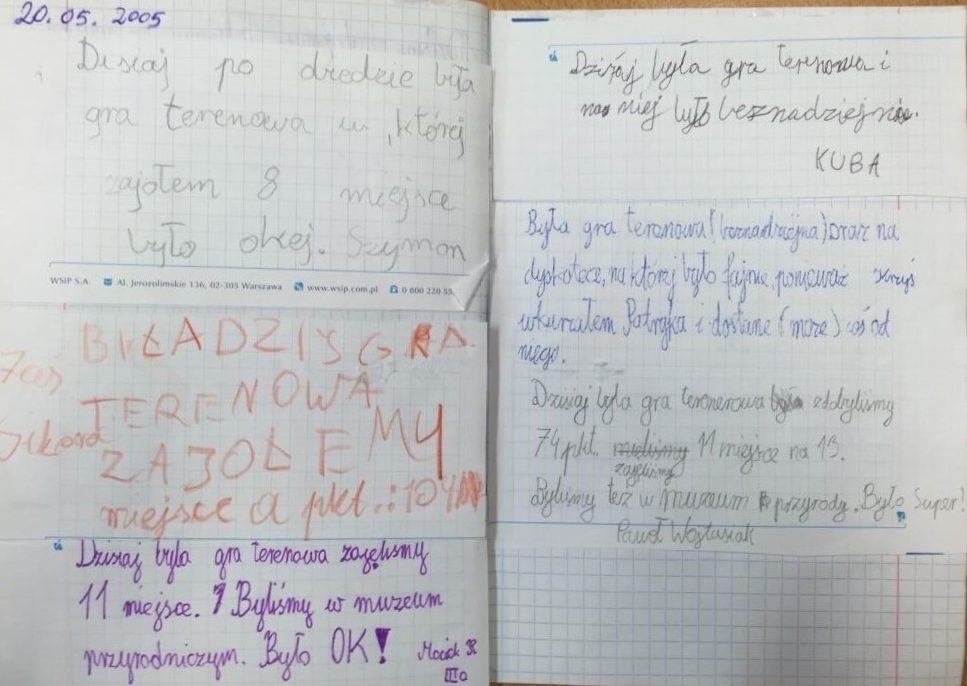 20.05.2005
Disiaj po obiedzie była
gra terenowa w, której
zajołem 8 miejsce
było okej. Szymon
WSiP S.A. Al. Jerozolimskie 136, 02-305 Warszawa www.wsip.com.pl 0 800 220 55
BYŁA DZIŚ GRA
TERENOWA
ZAJOŁEMY
miejsce a pkt.: 104
Dzisiaj była gra terenowa zajęliśmy
11 miejsce. Byliśmy w muzeum
przyrodniczym. Było OK!
Maciek
III a
Dzisiaj była gra terenowa i
na niej było beznadziejnie.
KUBA
Była gra terenowa (beznadziejna) oraz na
dyskotece, na której było fajnie, ponieważ
wkurzałem Patryka i dostane (może) coś od
niego.
Krzyś
Dzisiaj była gra teronerowa była zdobyliśmy
74 pkt. mieliśmy 11 miejsce na 13.
zajęliśmy
Byliśmy też w muzeum przyrody. Było Super!
Paweł Wojtasiak